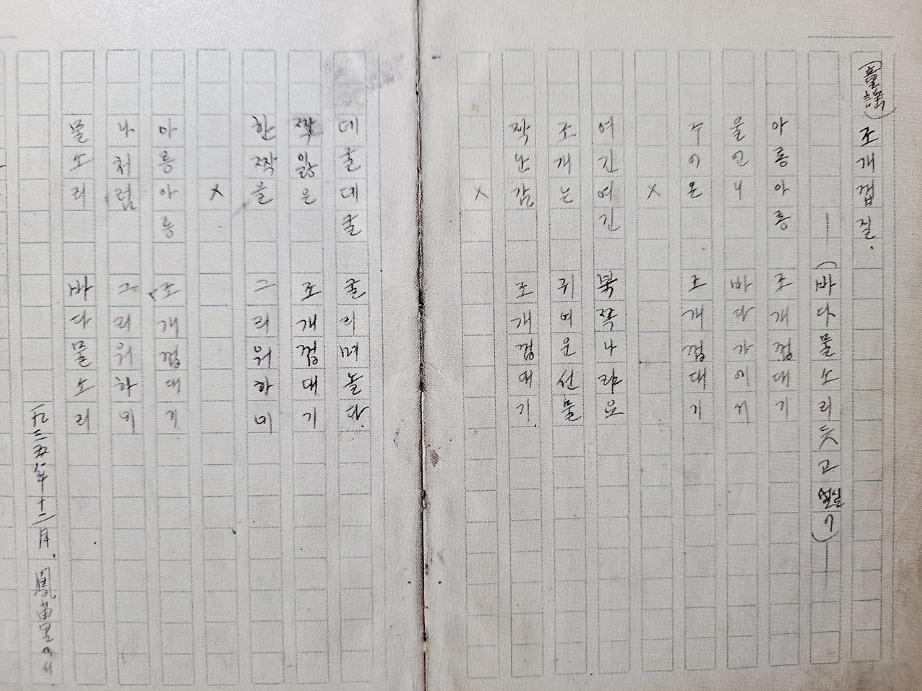 (童謠) 조개껍질.
—(바다물소리듯고싶어)—
아롱아롱 조개껍대기
울언니 바다가에서
주어온 조개껍대기
×
여긴여긴 북쪽나라요
조개는 귀여운선물
작난감 조개껍대기
×
데굴데굴 굴리며놀다
짝잃은 조개껍대기
한짝을 그리워하네
×
아롱아롱 조개껍대기
나처럼 그리워하네
물소리 바다물소리
一九三五年十二月、鳳峀里에서